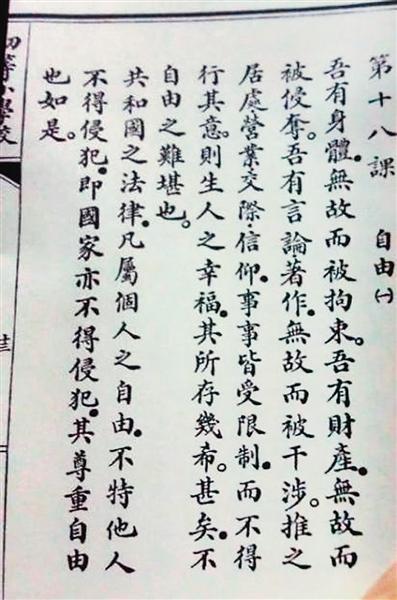 第十八課　自由㈠
吾有身體。無故而被拘束。吾有財產。無故而
被侵奪。吾有言論著作。無故而被干涉。推之
居處營業交際·信仰。事事皆受限制。而不得
行其意。則生人之幸福。其所存幾希。甚矣。不
自由之難堪也。
共和國之法律。凡屬個人之自由。不特他人
不得侵犯。即國家亦不得侵犯。其尊重自由
也如是。
初等小學校